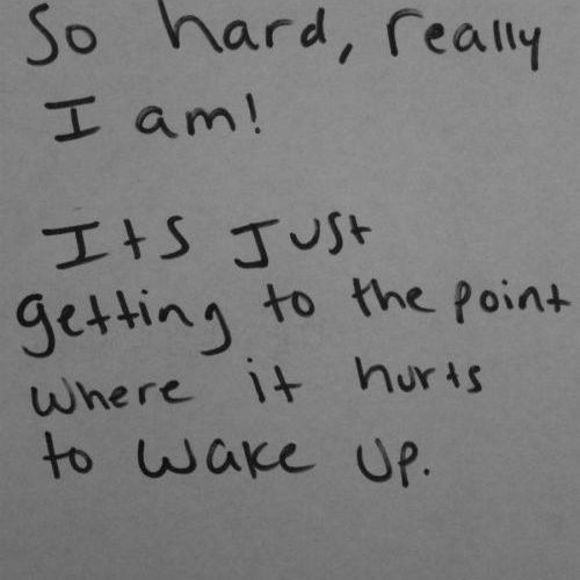 So hard, really
I am!
Its Just
getting to the point
where it hurts
to wake up.